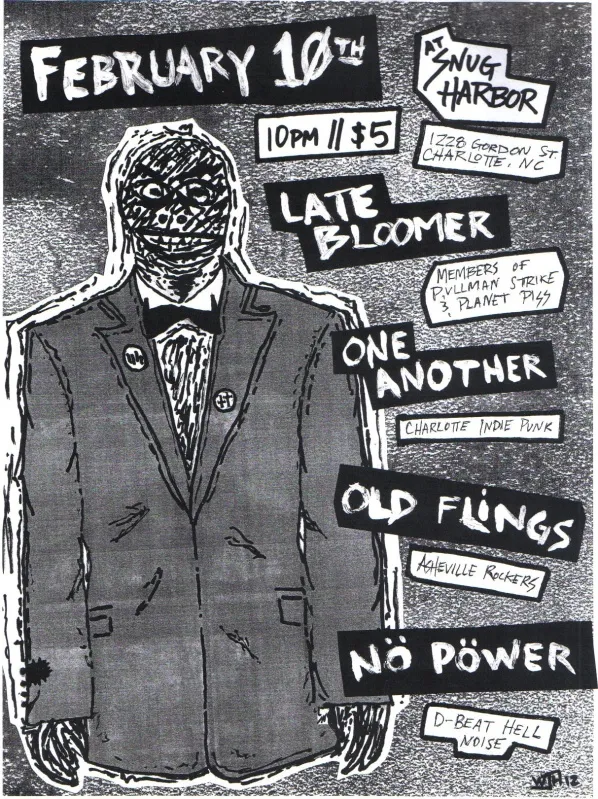 FEBRUARY 10TH
AT
SNUG
HARBOR
10PM // $5
1228 GORDON ST.
CHARLOTTE, NC
LATE
BLOOMER
MEMBERS OF
PULLMAN STRIKE
& PLANET PISS
ONE
ANOTHER
CHARLOTTE INDIE PUNK
OLD FLINGS
ASHEVILLE ROCKERS
NÖ PÖWER
D-BEAT HELL
NOISE
WTH 12